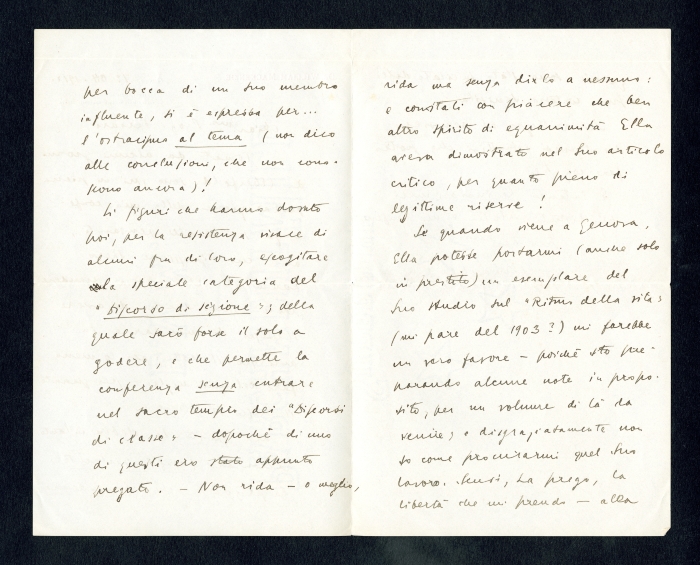 per bocca di un suo membro
influente, si è espressa per...
l'ostracismo al tema (non dico
alle conclusioni, che non cono-
scono ancora)!
Si figuri che hanno dovuto
poi, per la resistenza vivace di
alcuni fra di loro, escogitare
la speciale categoria del
"Discorso di sezione"; della
quale sarò forse il solo a
godere, e che permette la
conferenza senza entrare
nel sacro tempio dei "Discorsi
di classe" - dopochè di uno
di questi ero stato appunto
pregato. - Non rida - o meglio,
rida ma senza dirlo a nessuno:
e constati con piacere che ben
altro spirito di equanimità Ella
aveva dimostrato nel Suo articolo
critico, per quanto pieno di
legittime riserve!
Se quando viene a Genova,
Ella potesse portarmi (anche solo
in prestito) un esemplare del
Suo studio sul "Ritmo della vita"
(mi pare del 1903?) mi farebbe
un vero favore - poichè sto pre-
parando alcune note in propo-
sito, per un volume di là da
venire; e disgraziatamente non
so come procurarmi quel Suo
lavoro. Scusi, La prego, la
libertà che mi prendo - alla